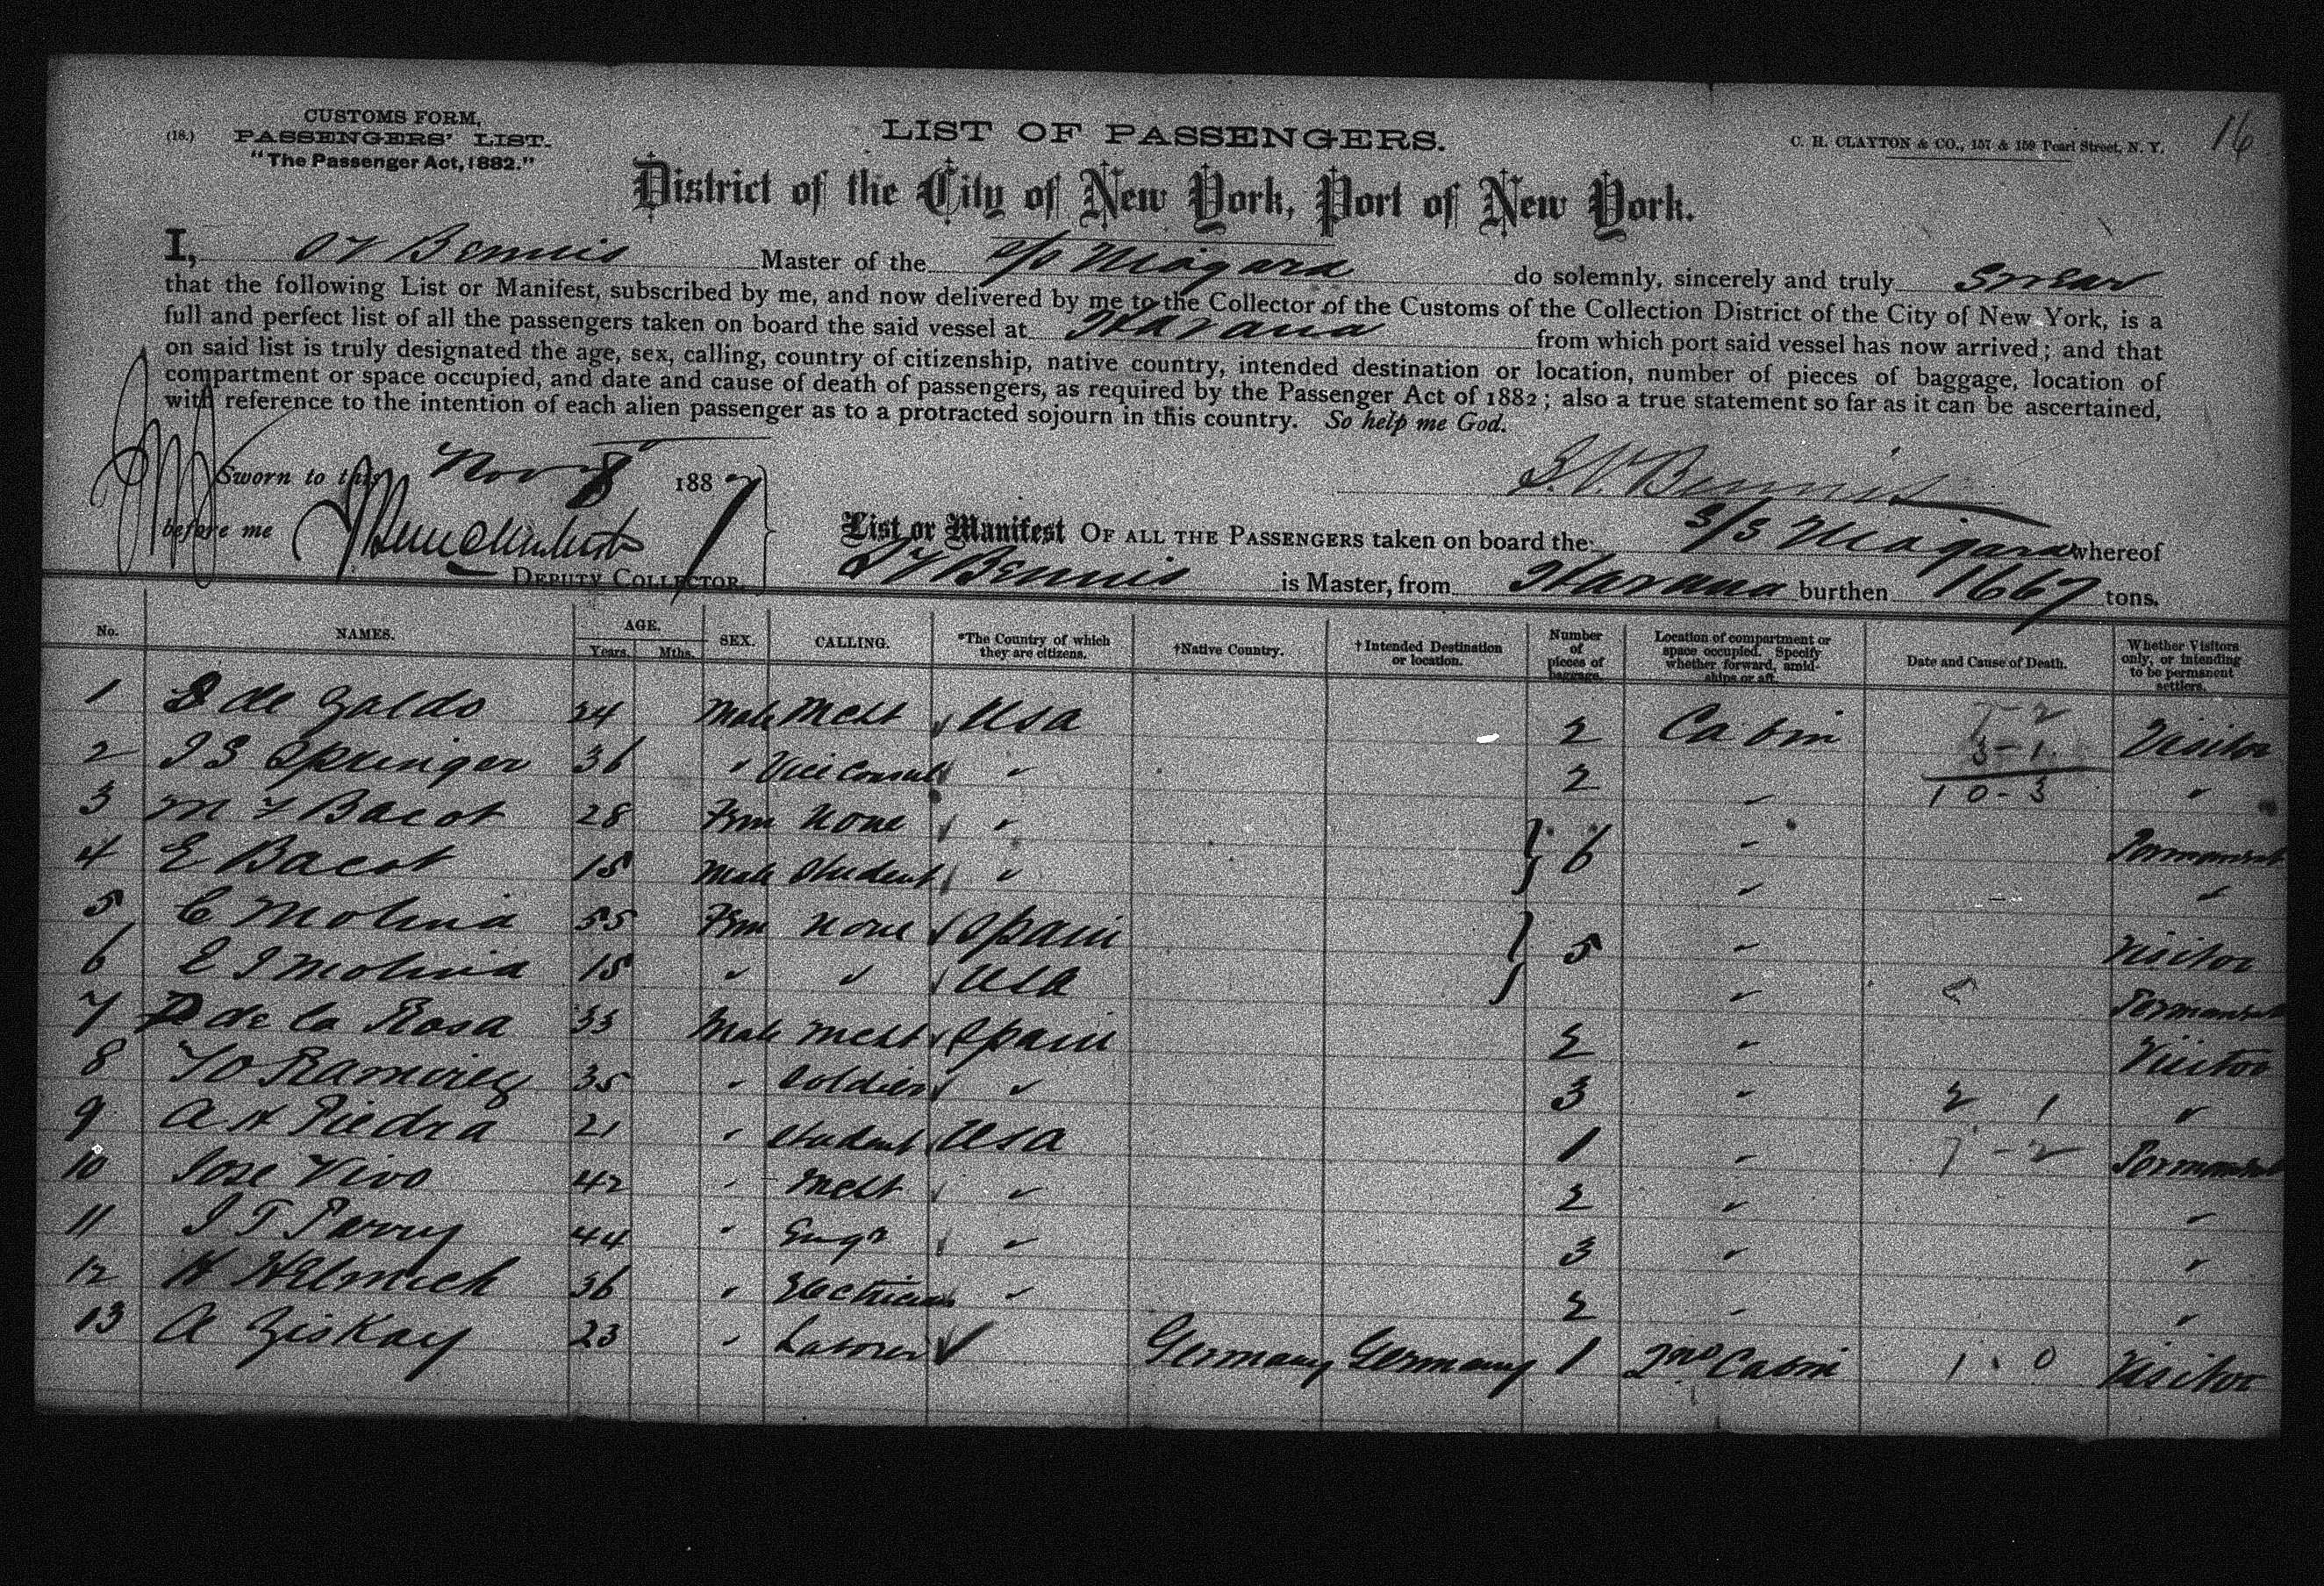 CUSTOMS FORM,
(18.) PASSENGERS' LIST.
"The Passenger Act, 1882."
LIST OF PASSENGERS.
C. H. CLAYTON & CO., 157 & 159 Pearl Street, N. Y.
16
District of the City of New York, Port of New York.
I, Bennis Master of the s/s Niagara do solemnly, sincerely and truly swear
that the following List or Manifest, subscribed by me, and now delivered by me to the Collector of the Customs of the Collection District of the City of New York, is a
full and perfect list of all the passengers taken on board the said vessel at Havana from which port said vessel has now arrived; and that
on said list is truly designated the age, sex, calling, country of citizenship, native country, intended destination or location, number of pieces of baggage, location of
compartment or space occupied, and date and cause of death of passengers, as required by the Passenger Act of 1882; also a true statement so far as it can be ascertained,
with reference to the intention of each alien passenger as to a protracted sojourn in this country. So help me God.
Sworn to this Nov 8 1887
Bennis
before me
DEPUTY COLLECTOR.
List or Manifest OF ALL THE PASSENGERS taken on board the S/S Niagara whereof
Bennis is Master, from Havana burthen 1667 tons.
No. NAMES. AGE. Years. Mths. SEX. CALLING. *The Country of which they are citizens. †Native Country. †Intended Destination or location. Number of pieces of baggage. Location of compartment or space occupied. Specify whether forward, amidships or aft. Date and Cause of Death. Whether Visitors only, or intending to be permanent settlers.
1 de Galdo 24 Male Mcht Usa 2 Cabin 7-2 Visitor
2 J S Springer 36 " Vice Consul " 2 " 3-1 "
10-3
3 M Y Bacot 28 Fem None " 6 " Permanent
4 E Bacot 15 Male Student " " "
5 C Molina 55 Fem None Spain 5 " Visitor
6 E J Molina 15 " " Usa " Permanent
7 P de la Rosa 33 Male Mcht Spain 2 " Visitor
8 Ramirez 35 " Soldier " 3 " 2 1 "
9 A H Piedra 21 " Student Usa 1 " 7-2 Permanent
10 Jose Vivo 42 " Mcht " 2 " "
11 J T Parry 44 " Engr " 3 " "
12 H Helmrich 36 " Electrician " 2 " "
13 A Ziskay 23 " Laborer Germany Germany 1 2nd Cabin 1 0 Visitor